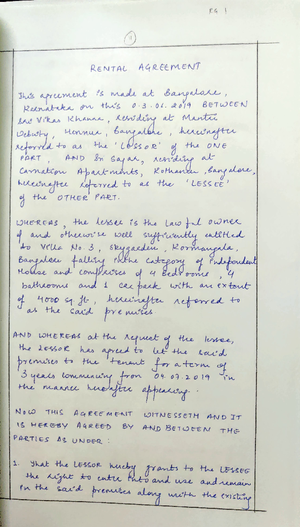 PG 1
1
RENTAL AGREEMENT
This agreement is made at Bangalore,
Karnataka on this 03.06.2019 BETWEEN
Mr Vikas Khanna, residing at Mantri
Webcity, Hennur, Bangalore, hereinafter
referred to as the 'LESSOR' of the ONE
PART, AND Sr Sajan, residing at
Carnation Apartments, Kothanur, Bangalore,
hereinafter referred to as the 'LESSEE'
of the OTHER PART.
WHEREAS, the lessee is the lawful owner
of and otherwise well sufficiently entitled
to Villa No 3, Skygarden, Kormangala,
Bangalore falling in the category of Independent
House and comprises of 4 bedrooms, 4
bathrooms and 1 car park with an extent
of 4000 sq ft, hereinafter referred to
as the said premises
AND WHEREAS at the request of the lessee,
the LESSOR has agreed to let the said
premises to the tenant for a term of
3 years commencing from 04.07.2019 in
the manner hereafter appearing.
NOW THIS AGREEMENT WITNESSETH AND IT
IS HEREBY AGREED BY AND BETWEEN THE
PARTIES AS UNDER:
1. That the LESSOR hereby grants to the LESSEE
the right to enter into and use and remain
in the said premises along with the existing